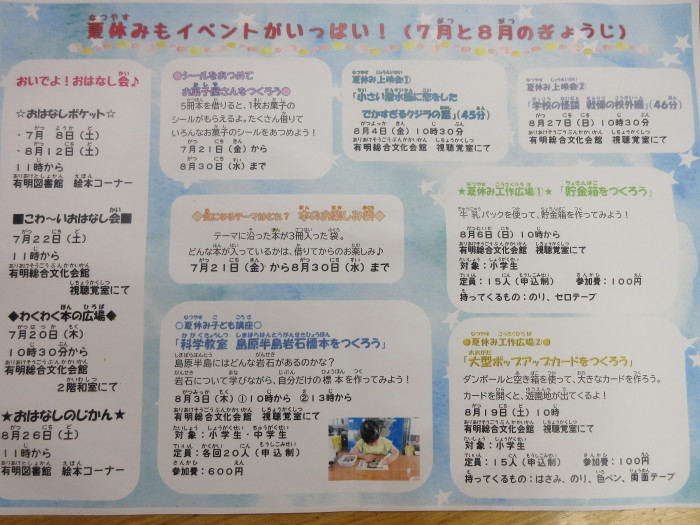 夏休みもイベントがいっぱい！（７月と８月のぎょうじ）
おいでよ！おはなし会♪
☆おはなしポケット☆
・７月　８日（土）
・８月１２日（土）
１１時から
有明図書館　絵本コーナー
■こわ～いおはなし会■
７月２２日（土）
１１時から
有明総合文化会館
視聴覚室にて
◆わくわく本の広場◆
７月２０日（木）
１０時３０分から
有明総合文化会館
２階和室にて
★おはなしのじかん★
８月２６日（土）
１１時から
有明図書館　絵本コーナー
◎シールをあつめて
お菓子屋さんをつくろう◎
５冊本を借りると、１枚お菓子の
シールがもらえるよ。たくさん借りて
いろんなお菓子のシールをあつめよう！
７月２１日（金）から
８月３０日（水）まで
夏休み上映会①
「小さい潜水艦に恋をした
でかすぎるクジラの話」（４５分）
８月４日（金）１０時３０分
有明総合文化会館　視聴覚室にて
夏休み上映会②
「学校の怪談　戦慄の校外編」（４６分）
８月２７日（日）１０時３０分
有明総合文化会館　視聴覚室にて
◇気になるテーマはどれ？　本のお楽しみ袋◇
テーマに沿った本が３冊入った袋。
どんな本が入っているかは、借りてからのお楽しみ♪
７月２１日（金）から８月３０日（水）まで
★夏休み工作広場①★「貯金箱をつくろう」
牛乳パックを使って、貯金箱を作ってみよう！
８月６日（日）１０時から
有明総合文化会館　視聴覚室にて
対象：小学生
定員：１５人（申込制）　参加費：１００円
持ってくるもの：のり、セロテープ
〇夏休み子ども講座〇
「科学教室　島原半島岩石標本をつくろう」
島原半島にはどんな岩石があるのかな？
岩石について学びながら、自分だけの標本を作ってみよう！
８月３日（木）①１０時から　②１３時から
有明総合文化会館　視聴覚室にて
対象：小学生・中学生
定員：各回２０人（申込制）
参加費：６００円
◎夏休み工作広場②◎
「大型ポップアップカードをつくろう」
ダンボールと空き箱を使って、大きなカードを作ろう。
カードを開くと、遊園地が出てくるよ！
８月１９日（土）１０時
有明総合文化会館　視聴覚室にて
対象：小学生
定員：１５人（申込制）　参加費：１００円
持ってくるもの：はさみ、のり、色ペン、両面テープ